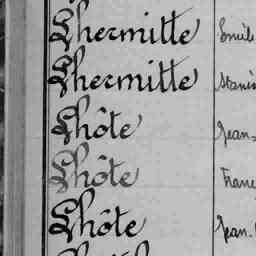 Lhermitte Emile
Lhermitte Stanis
Lhôte Jean-
Lhôte Franç
Lhôte Jean-